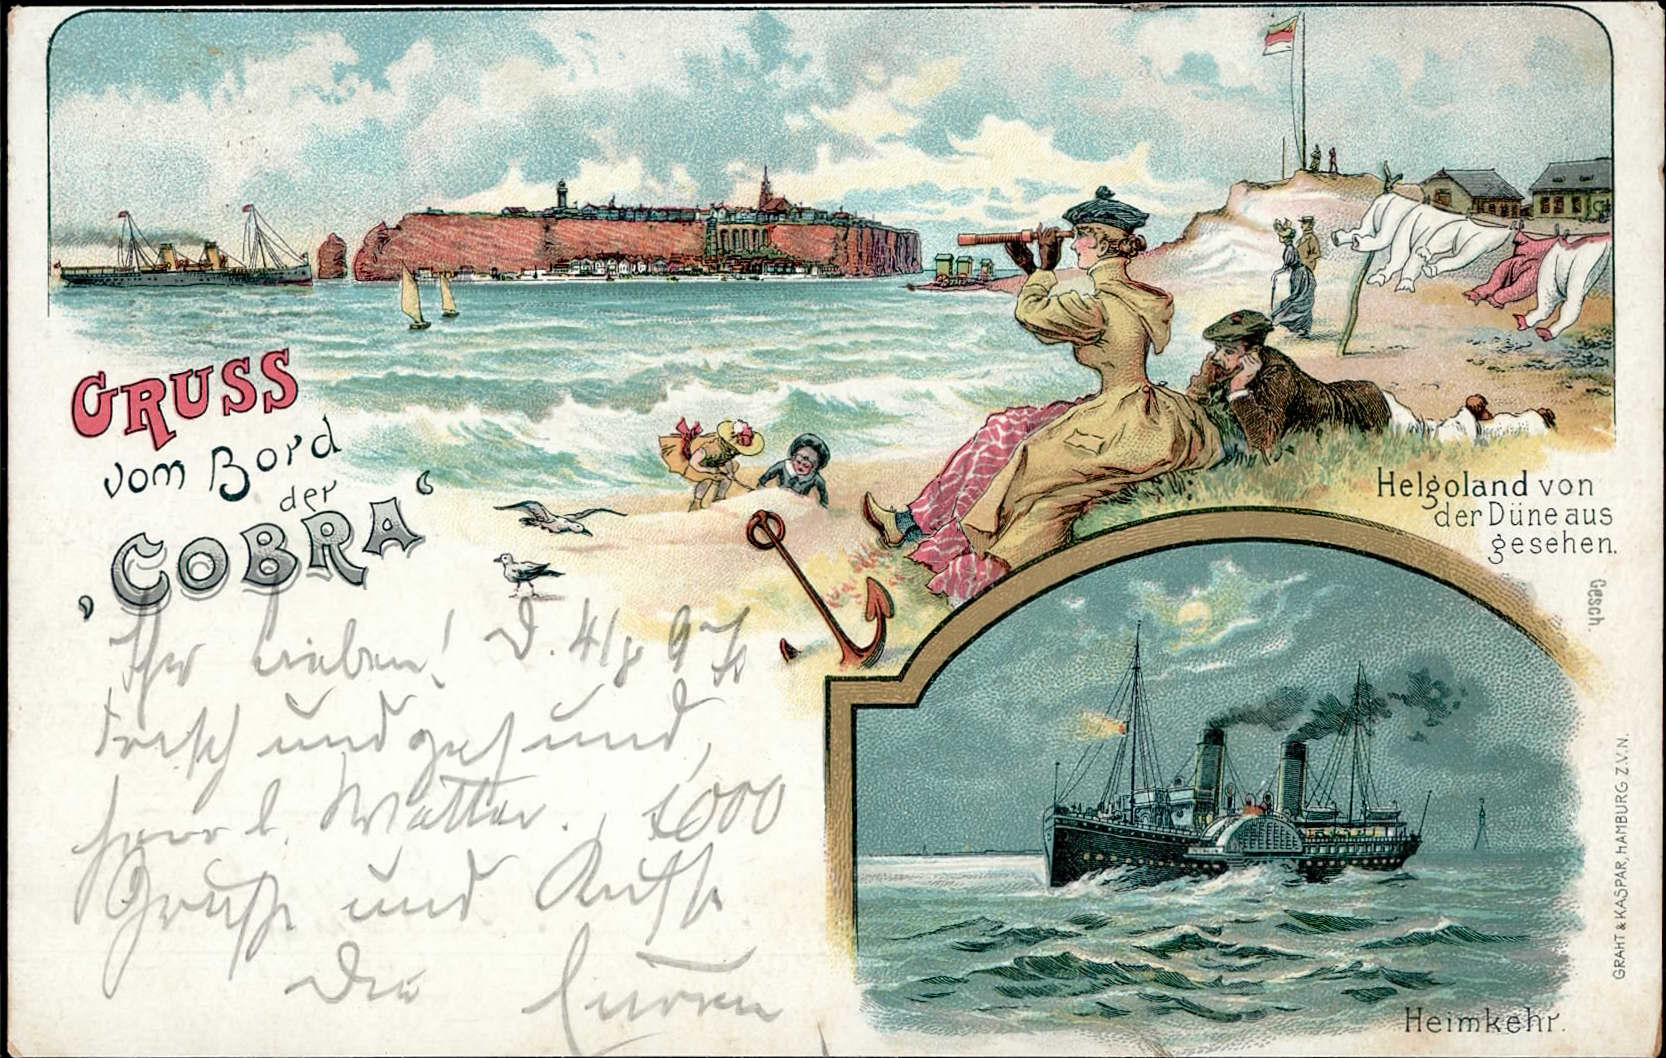 GRUSS
vom Bord
der
"COBRA"
Ihr Lieben! D. 4/8 97
Frisch und gesund,
herrl. Wetter. 1000
Grüße und Küsse
Die Euren
Helgoland von
der Düne aus
gesehen.
Gesch.
GRAHT & KASPAR, HAMBURG Z.V.N.
Heimkehr.